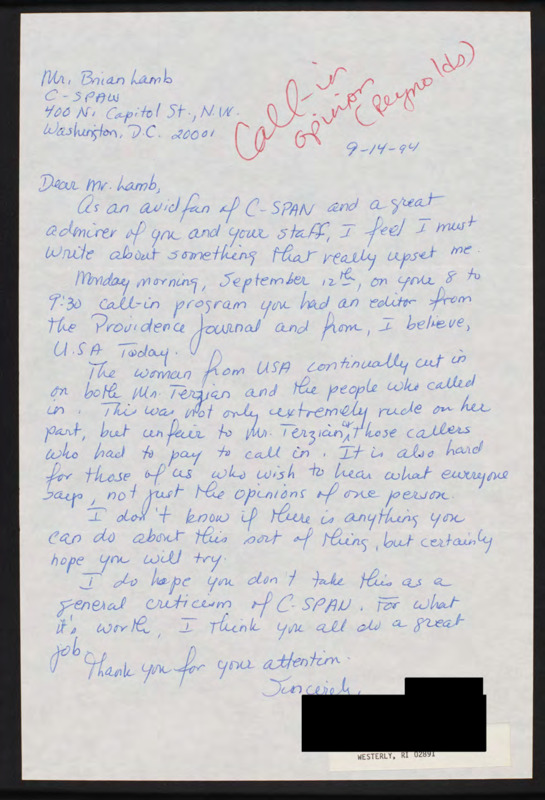 Mr. Brian Lamb
C-SPAN
400 N. Capitol St., N.W.
Washington, D.C. 20001
Call-in
opinion
(Reynolds)
9-14-94
Dear Mr. Lamb,
As an avid fan of C-SPAN and a great
admirer of you and your staff, I feel I must
write about something that really upset me.
Monday morning, September 12th, on your 8 to
9:30 call-in program you had an editor from
the Providence Journal and from, I believe,
U.S.A Today.
The woman from USA continually cut in
on both Mr. Terzian and the people who called
in. This was not only extremely rude on her
part, but unfair to Mr. Terzian & those callers
who had to pay to call in. It is also hard
for those of us who wish to hear what everyone
says, not just the opinions of one person.
I don't know if there is anything you
can do about this sort of thing, but certainly
hope you will try.
I do hope you don't take this as a
general criticism of C-SPAN. For what
it's worth, I think you all do a great
job.
Thank you for your attention.
Sincerely,
WESTERLY, RI 02891